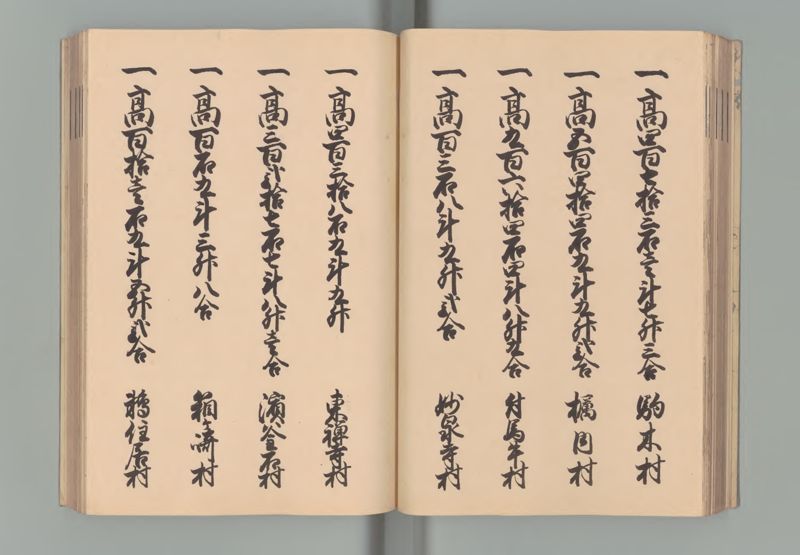 一 高四百七拾三石壱斗七升三合 駒木村
一 高五百四拾四石九斗九升弐合 横田村
一 高九百六拾四石四斗八升九合 附馬牛村
一 高百三石八斗九升弐合 妙泉寺村
一 高四百三拾八石九斗九升 東禅寺村
一 高三百弐拾七石七斗八升壱合 濱釜石村
一 高百石九斗三升八合 箱ヶ崎村
一 高百拾壱石九斗五升弐合 鵜住居村